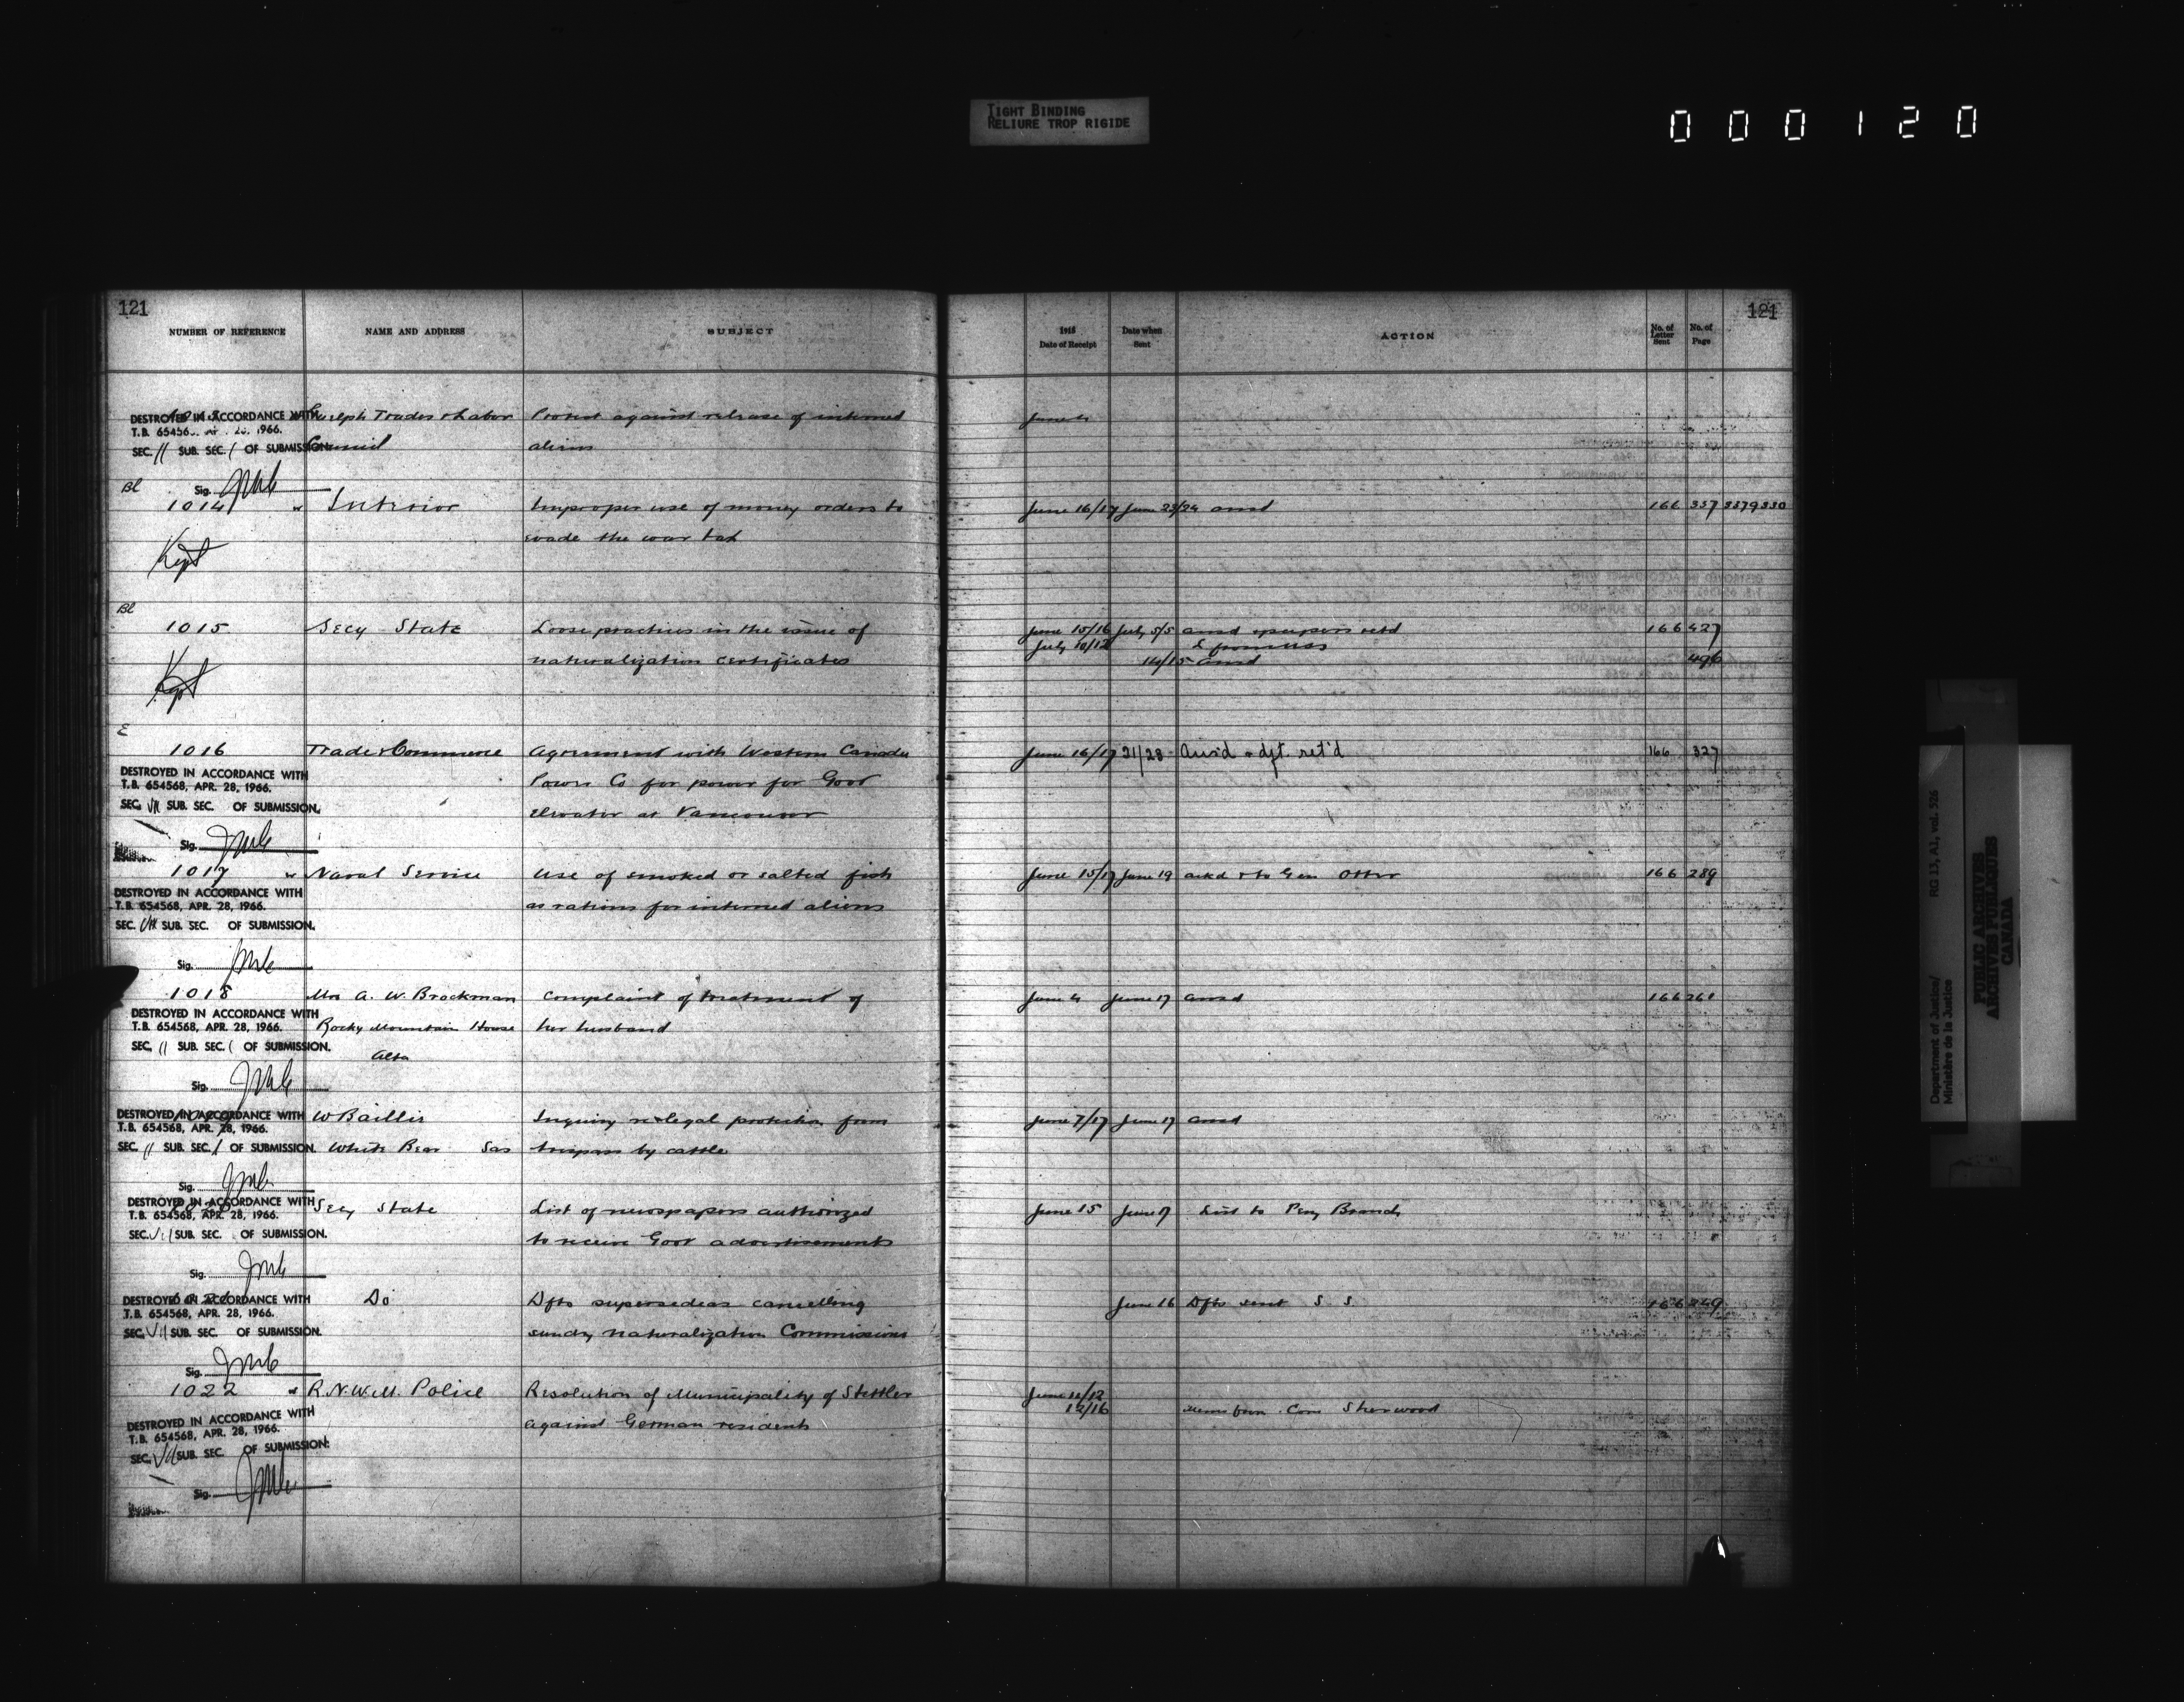 TIGHT BINDING
RELIURE TROP RIGIDE
000120
121
NUMBER OF REFERENCE NAME AND ADDRESS SUBJECT
1915 Date of Receipt Date when Sent ACTION No. of Letter Sent No. of Page
121
DESTROYED IN ACCORDANCE WITH Guelph Trades & Labor Protest against release of interned June 4
T.B. 654568, APR. 28, 1966.
SEC. 11 SUB. SEC. 1 OF SUBMISSION Council aliens
Sig. JMC
Bl
1014 " Interior Improper use of money orders to June 16/17 June 23/24 ansd 166 337 337 9 330
evade the war tax
Kept
Bl
1015 Secy State Loose practices in the issue of June 15/16 July 5/5 ansd & papers retd 166 427
July 10/12
naturalization certificates 14/15 ansd 496
Kept
E
1016 Trade & Commerce Agreement with Western Canada June 16/17 21/23 Ans'd & dft. ret'd 166 327
DESTROYED IN ACCORDANCE WITH
T.B. 654568, APR. 28, 1966. Power Co for power for Govt
SEC. VII SUB. SEC. OF SUBMISSION. elevator at Vancouver
Sig. JMC
1017 " Naval Service Use of smoked or salted fish June 15/17 June 19 ackd & to Gen Otter 166 289
DESTROYED IN ACCORDANCE WITH
T.B. 654568, APR. 28, 1966. as rations for interned aliens
SEC. VII SUB. SEC. OF SUBMISSION.
Sig. JMC
1018 Mrs A. W. Brockman Complaint of treatment of June 4 June 17 ansd 166 261
DESTROYED IN ACCORDANCE WITH
T.B. 654568, APR. 28, 1966. Rocky Mountain House her husband
SEC. 11 SUB. SEC. 1 OF SUBMISSION. Alta
Sig. JMC
DESTROYED IN ACCORDANCE WITH W Baillie Inquiry re legal protection from June 7/17 June 17 ansd
T.B. 654568, APR. 28, 1966.
SEC. 11 SUB. SEC. 1 OF SUBMISSION. White Bear Sas trespass by cattle
Sig. JMC
DESTROYED IN ACCORDANCE WITH Secy State List of newspapers authorized June 15 June 17 List to Peny Branch
T.B. 654568, APR. 28, 1966.
SEC. VII SUB. SEC. OF SUBMISSION. to receive Govt advertisements
Sig. JMC
DESTROYED IN ACCORDANCE WITH Do Dfts supersedeas cancelling June 16 Dfts sent S. S. 166 249
T.B. 654568, APR. 28, 1966.
SEC. VII SUB. SEC. OF SUBMISSION. sundry naturalization Commissions
Sig. JMC
1022 " R.N.W.M. Police Resolution of Municipality of Stettler June 11/12
12/16 memo from Com Sherwood
DESTROYED IN ACCORDANCE WITH against German residents
T.B. 654568, APR. 28, 1966.
SEC. VII SUB. SEC. OF SUBMISSION.
Sig. JMC
Department of Justice/
Ministère de la Justice
RG 13, A1, vol. 526
PUBLIC ARCHIVES
ARCHIVES PUBLIQUES
CANADA